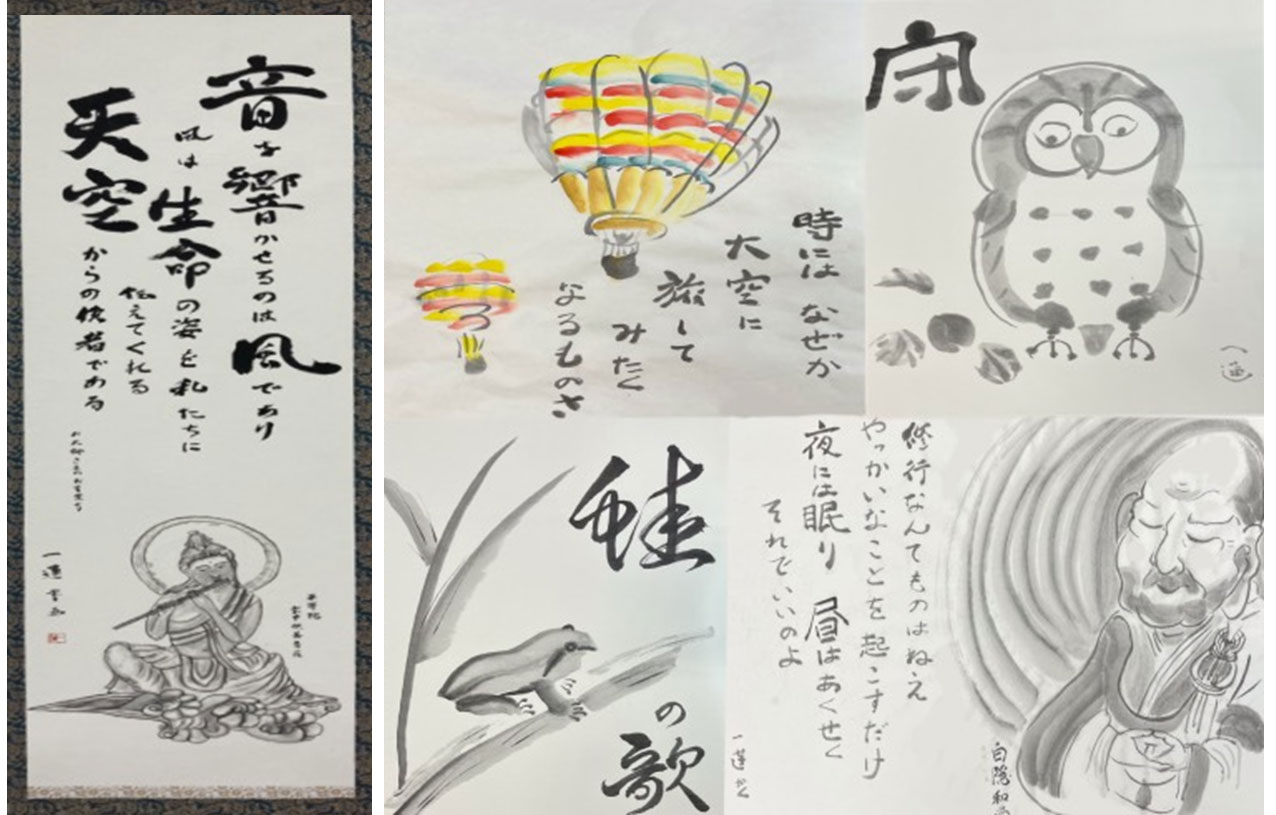 音を響かせるのは風であり
風は生命の姿を私たちに
伝えてくれる
天空からの使者である
一蓮
時にはなぜか
大空に
旅して
みたく
なるものさ
守
一蓮
蛙
の歌
修行なんてものはねえ
やっかいなことを起こすだけ
夜には眠り昼はあくせく
それでいいのよ
一蓮
白隠和尚